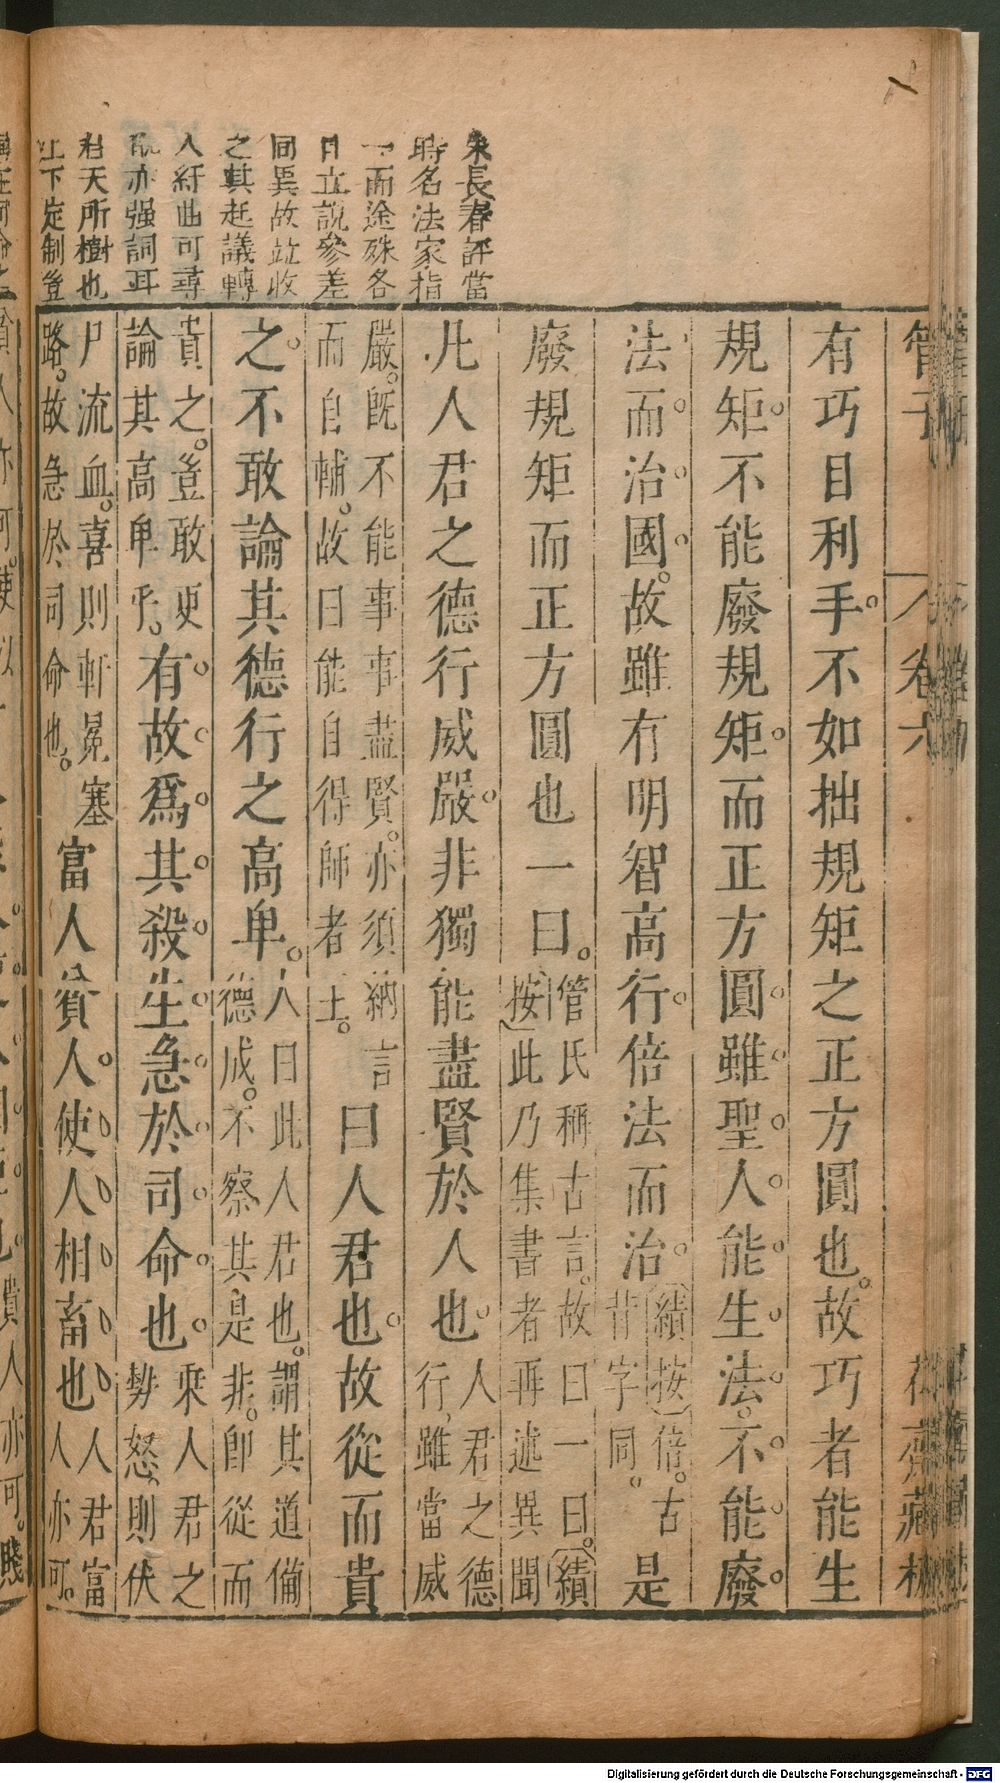 朱長春評當
時名法家指
一而途殊各
日立說參差
同異故並收
之其起議轉
入紆曲可尋
亦强詞耳
君天所樹也
上下定制豈
管子
卷六
花齋藏板
有巧目利手。不如拙規矩之正方圓也。故巧者能生
規矩。不能廢規矩。而正方圓。雖聖人能生法。不能廢
法。而治國。故雖有明智高行。倍法而治。〔續按〕倍。古
背字同。是
廢規矩而正方圓也一曰。管氏稱古言。故曰一曰。〔續
按〕此乃集書者再述異聞
凡人君之德行威嚴。非獨能盡賢於人也。人君之德
行。雖當威
嚴。旣不能事事盡賢。亦須納言
而自輔。故曰能自得師者王。
曰人君也。故從而貴
之。不敢論其德行之高卑。人曰此人君也。謂其道備
德成。不察其是非。卽從而
貴之。豈敢更
論其高卑乎。
有故爲其殺生急於司命也。乘人君之
勢怒。則伏
尸流血。喜則軒冕塞
路。故急於司命也。
富人貧人。使人相畜也。人君富
人亦可。
貴人亦可。賤
Digitalisierung gefördert durch die Deutsche Forschungsgemeinschaft - DFG